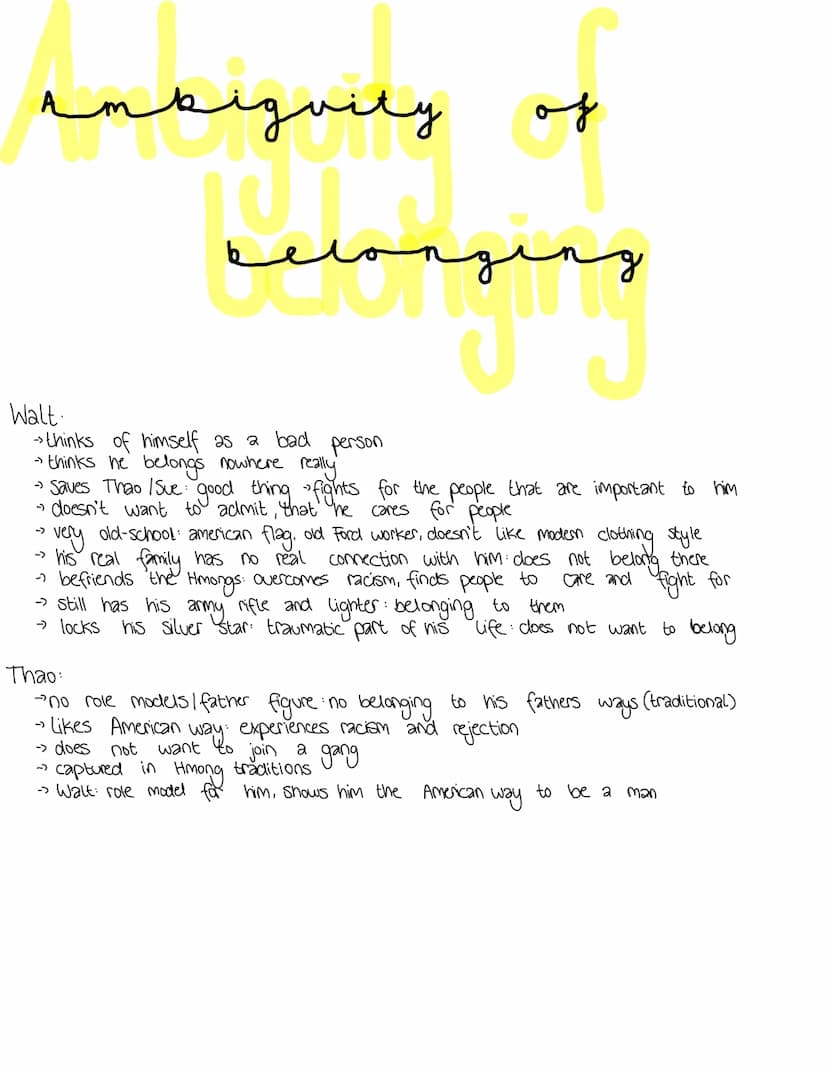 Ambiguity of
belonging
Walt:
→ thinks of himself as a bad person
→ thinks he belongs nowhere really
→ saves Thao/Sue: good thing → fights for the people that are important to him
→ doesn't want to admit, that he cares for people
→ very old-school: american flag, old Ford worker, doesn't like modern clothing style
→ his real family has no real connection with him: does not belong there
→ befriends the Hmongs: overcomes racism, finds people to care and fight for
→ still has his army rifle and lighter: belonging to them
→ locks his silver star: traumatic part of his life: does not want to belong
Thao:
→ no role models/father figure: no belonging to his fathers ways (traditional)
→ likes American way: experiences racism and rejection
→ does not want to join a gang
→ captured in Hmong traditions
→ Walt: role model for him, shows him the American way to be a man